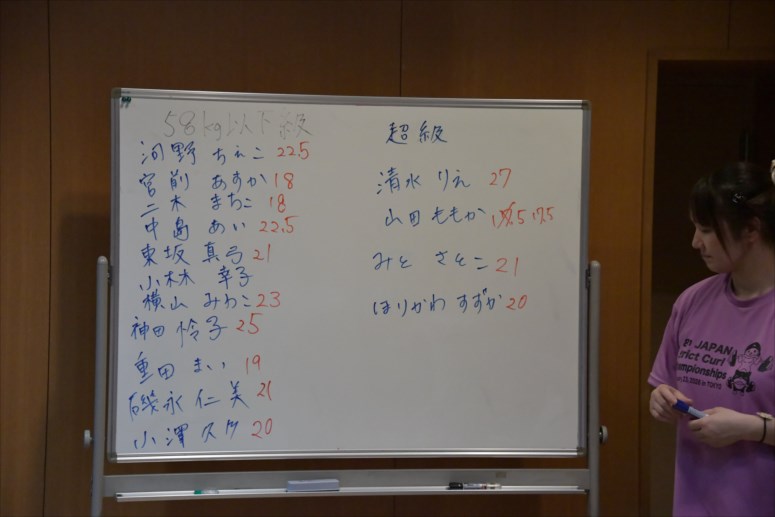 58kg以下級
河野 ちえこ 22.5
宮前 あすか 18
二木 まちこ 18
中島 あい 22.5
東坂 真弓 21
小林 幸子
横山 みわこ 23
神田 怜子 25
重田 まい 19
磯永 仁美 21
小澤 20
超級
清水 りえ 27
山田 ももか 17.5
みと さとこ 21
ほりかわ すずか 20
JAPAN
trict Curl
mpionships
in TOKYO